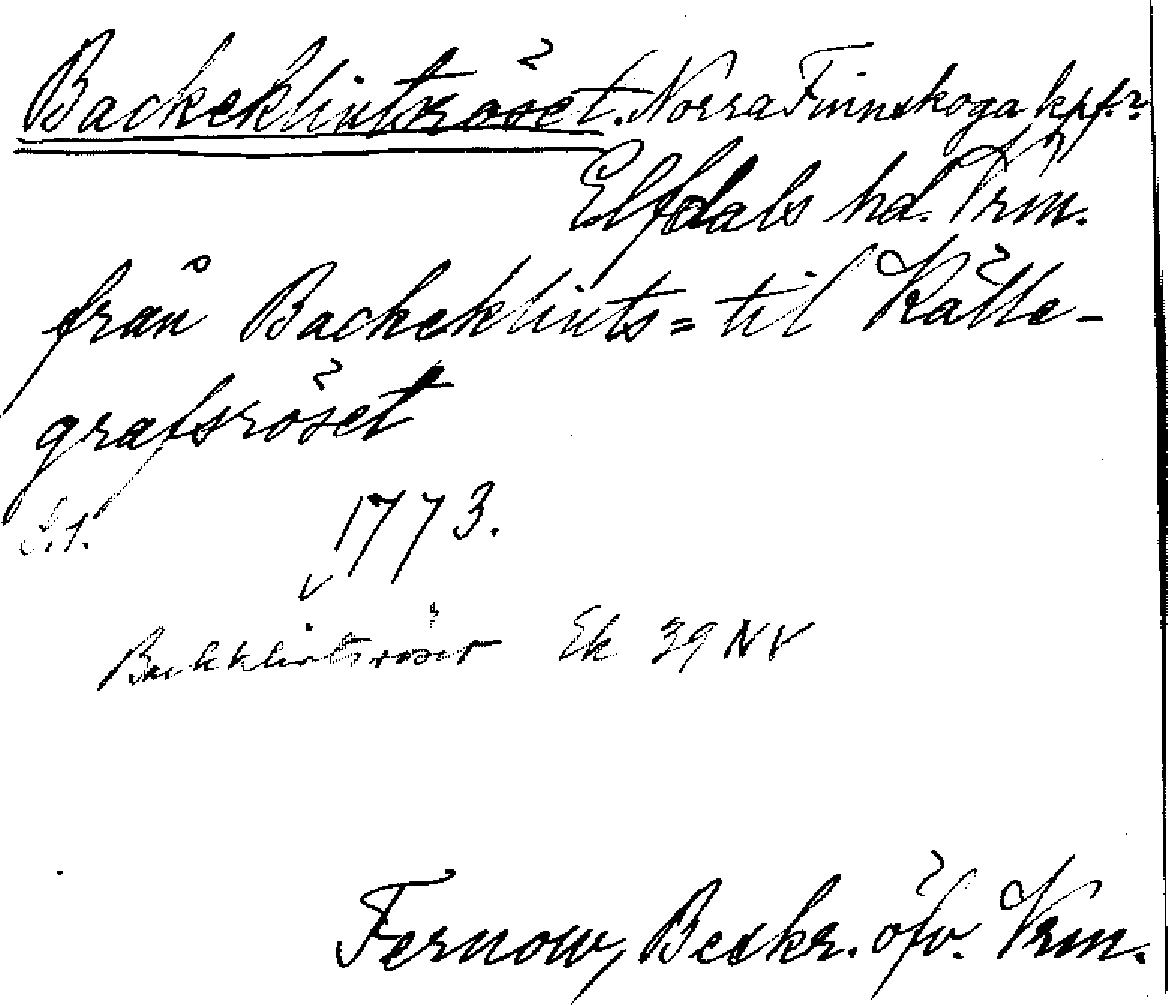 Backeklintsröset. Norra Finnskoga kpf.?
Elfdals hd. Vrm.
från Backeklints= til Kätte-
grafsröset
S. 1.
1773.
Backklintsröset Ek 39 NV
Fernow, Beskr. öfv. Vrm.